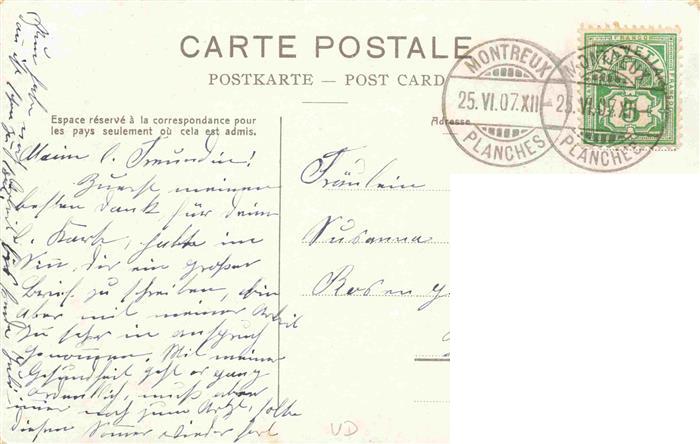 CARTE POSTALE
POSTKARTE — POST CARD
Espace réservé à la correspondance pour
les pays seulement où cela est admis.
Adresse
MONTREUX
25.VI.07.XII
PLANCHES
MONTREUX
25.VI.07.XII
PLANCHES
FRANCO
5
Meine l. Freundin!
Zuerst meinen
besten Dank für deine
l. Karte, hatte im
Sinn, dir ein großer
Brief zu schreiben, bin
aber mit meiner Arbeit
zu sehr in anspruch
genommen. Mit meiner
Gesundheit geht es ganz
ordentlich, muß aber
immer noch zum Arzt, sollte
diesen Sommer wieder fort
Fräulein
Susanna
Rosen
VD